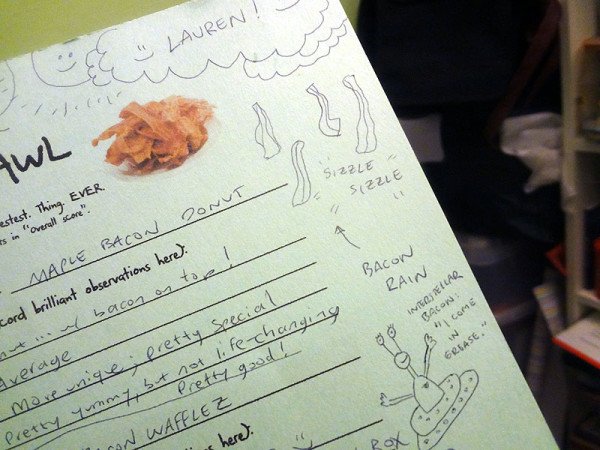 LAUREN!
AWL
"SIZZLE
SIZZLE"
estest. Thing. EVER.
rs in "overall score".
MAPLE BACON DONUT
BACON
RAIN
cord brilliant observations here):
nut... w/ bacon on top!
INTERSTELLAR
BACON:
"I COME
IN
GREASE."
Average
More unique; pretty special
Pretty yummy, but not life-changing
Pretty good!
BACON WAFFLEZ
ns here):
BOX